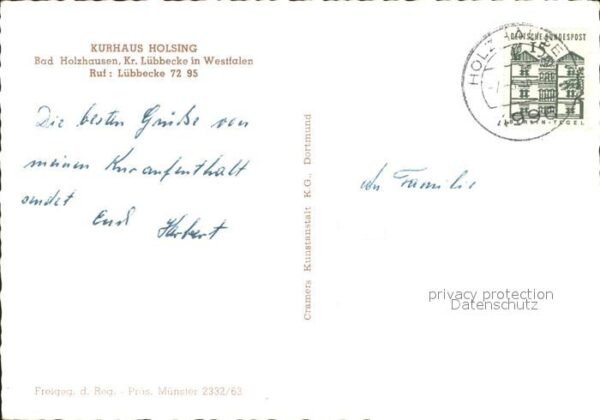 KURHAUS HOLSING
Bad Holzhausen, Kr. Lübbecke in Westfalen
Ruf: Lübbecke 72 95
DEUTSCHE BUNDESPOST
15
TEGEL
Die besten Grüße von
meinen Kuraufenthalt
sendet
Euch Herbert
Cramers Kunstanstalt K.G., Dortmund
An Familie
privacy protection
Datenschutz
Freigeg. d. Reg. - Präs. Münster 2332/63